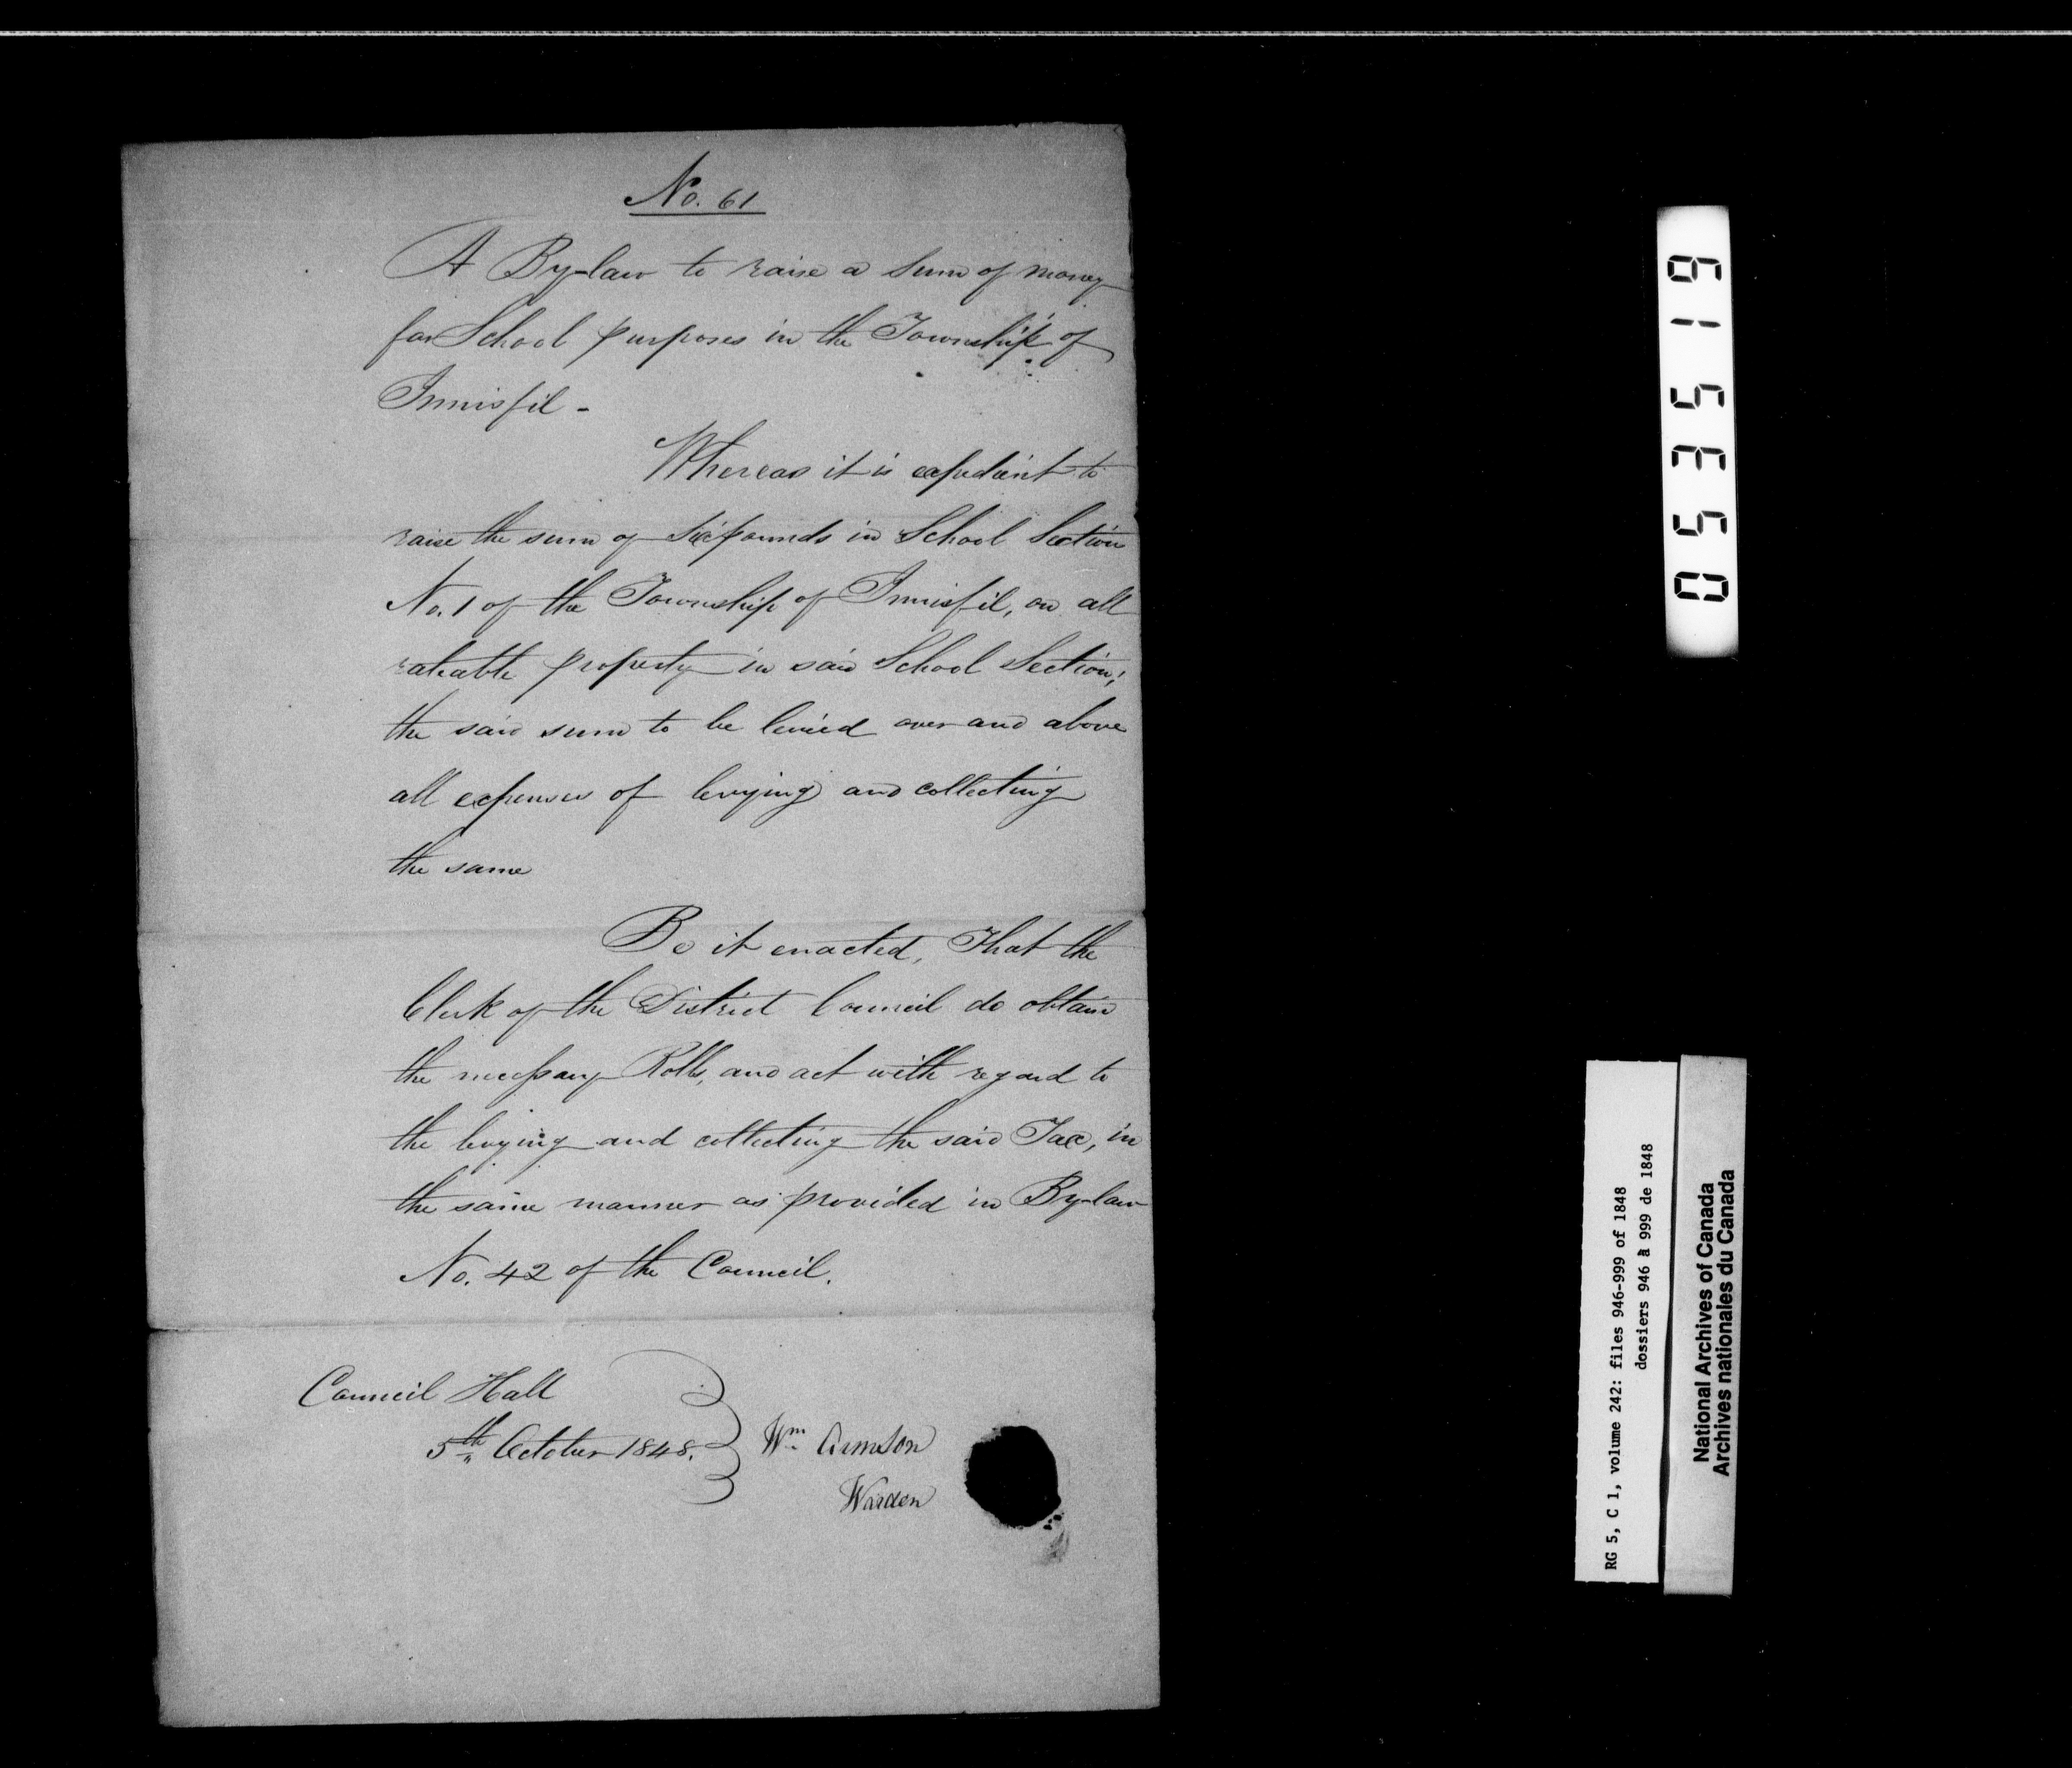 No. 61
A By-law to raise a sum of money
for School purposes in the Township of
Innisfil -
Whereas it is expedient to
raise the sum of Six pounds in School Section
No. 1 of the Township of Innisfil, on all
rateable property in said School Section;
the said sum to be levied over and above
all expenses of levying and collecting
the same
Be it enacted, That the
Clerk of the District Council do obtain
the necessary Rolls, and act with regard to
the levying and collecting the said Tax, in
the same manner as provided in By-law
No. 42 of the Council.
Council Hall
5th October 1848.
Wm Armson
Warden
053519
RG 5, C 1, volume 242: files 946-999 of 1848
dossiers 946 à 999 de 1848
National Archives of Canada
Archives nationales du Canada